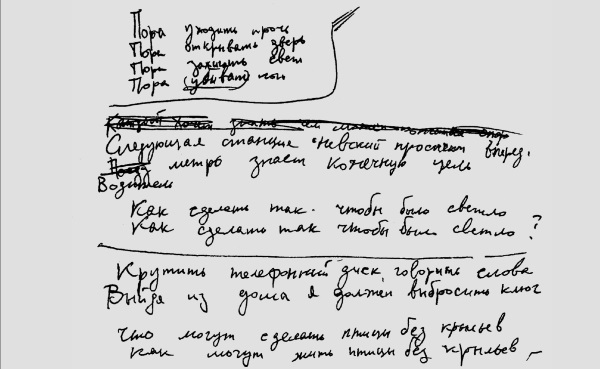 Пора уходить прочь
Пора открывать дверь
Пора зажигать свет
Пора убивать
Каждый хочет знать
Следующая станция Невский проспект вперед.
метро знает конечную цель
Водитель
Как сделать так. чтобы было светло
Как сделать так чтобы было светло?
Крутить телефонный диск, говорить слова
Выйдя из дома я должен выбросить ключ
Что могут сделать птицы без крыльев
Как могут жить птицы без крыльев